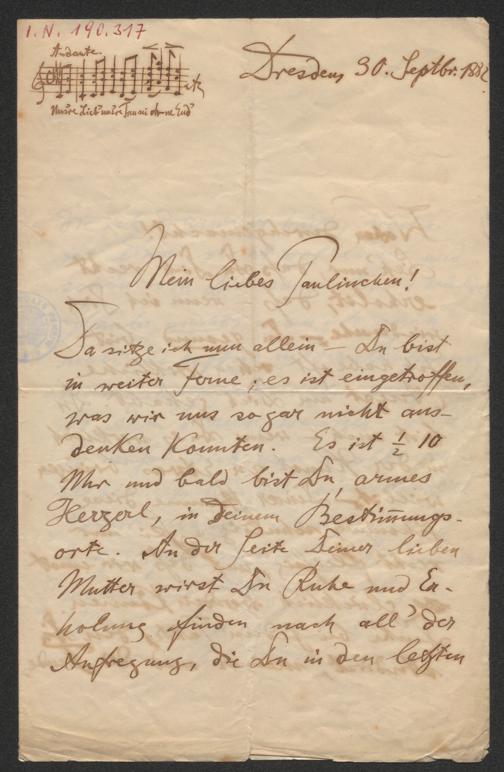 I. N. 190.317
Andante.
etc
Unsre Lieb' unsre Treu ist ohne End'
Dresden, 30. Septbr. 1882
Mein liebes Paulinchen!
Da sitze ich nun allein – Du bist
in weiter Ferne, es ist eingetroffen,
was wir uns so gar nicht aus-
denken konnten. Es ist ½ 10
Uhr und bald bist Du, armes
Herzerl, in Deinem Bestim̅ungs-
orte. An der Seite Deiner lieben
Mutter wirst Du Ruhe und Er-
holung finden nach all' der
Aufregung, die Du in den letzten